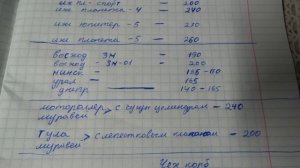 иж пл-спорт — 200
иж планета-4 — 240
иж юпитер-5 — 230
иж планета-5 — 260
восход 3М — 190
восход-3М-01 — 200
минск — 155-170
урал — 165
днепр — 140-165
мотороллер муравей > с чугун цилиндром — 240
Тула муравей > с лепестковым клапаном — 200